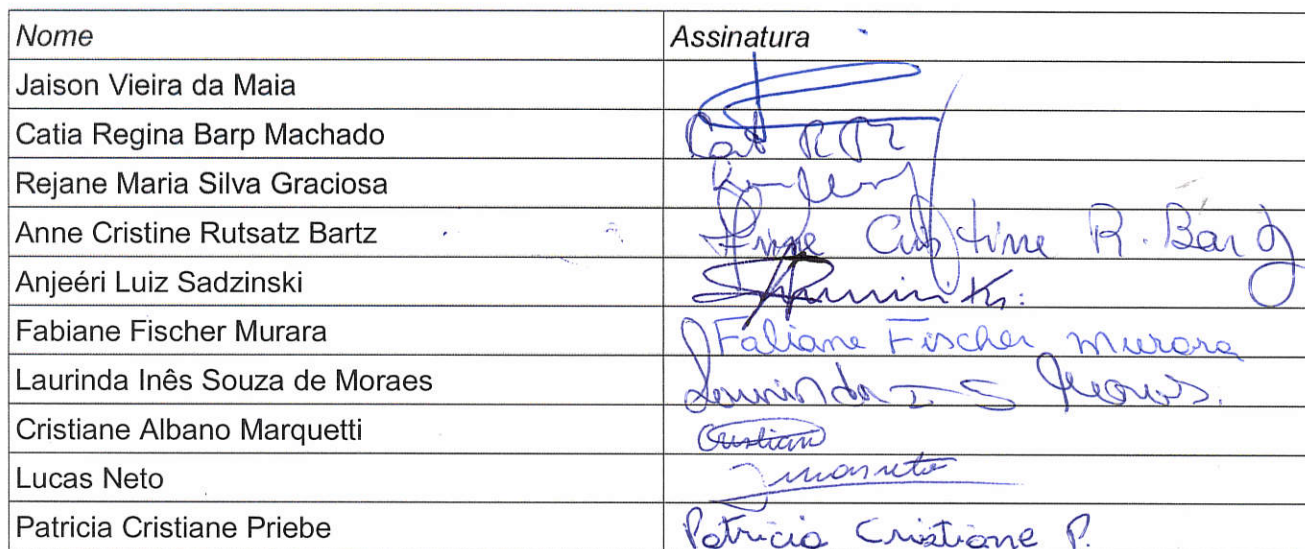 Nome Assinatura
Jaison Vieira da Maia
Catia Regina Barp Machado
Rejane Maria Silva Graciosa
Anne Cristine Rutsatz Bartz Anne Cristine R. Bartz
Anjeéri Luiz Sadzinski
Fabiane Fischer Murara Fabiane Fischer Murara
Laurinda Inês Souza de Moraes Laurinda I S Moraes.
Cristiane Albano Marquetti Cristiane
Lucas Neto Lucas neto
Patricia Cristiane Priebe Patricia Cristiane P.